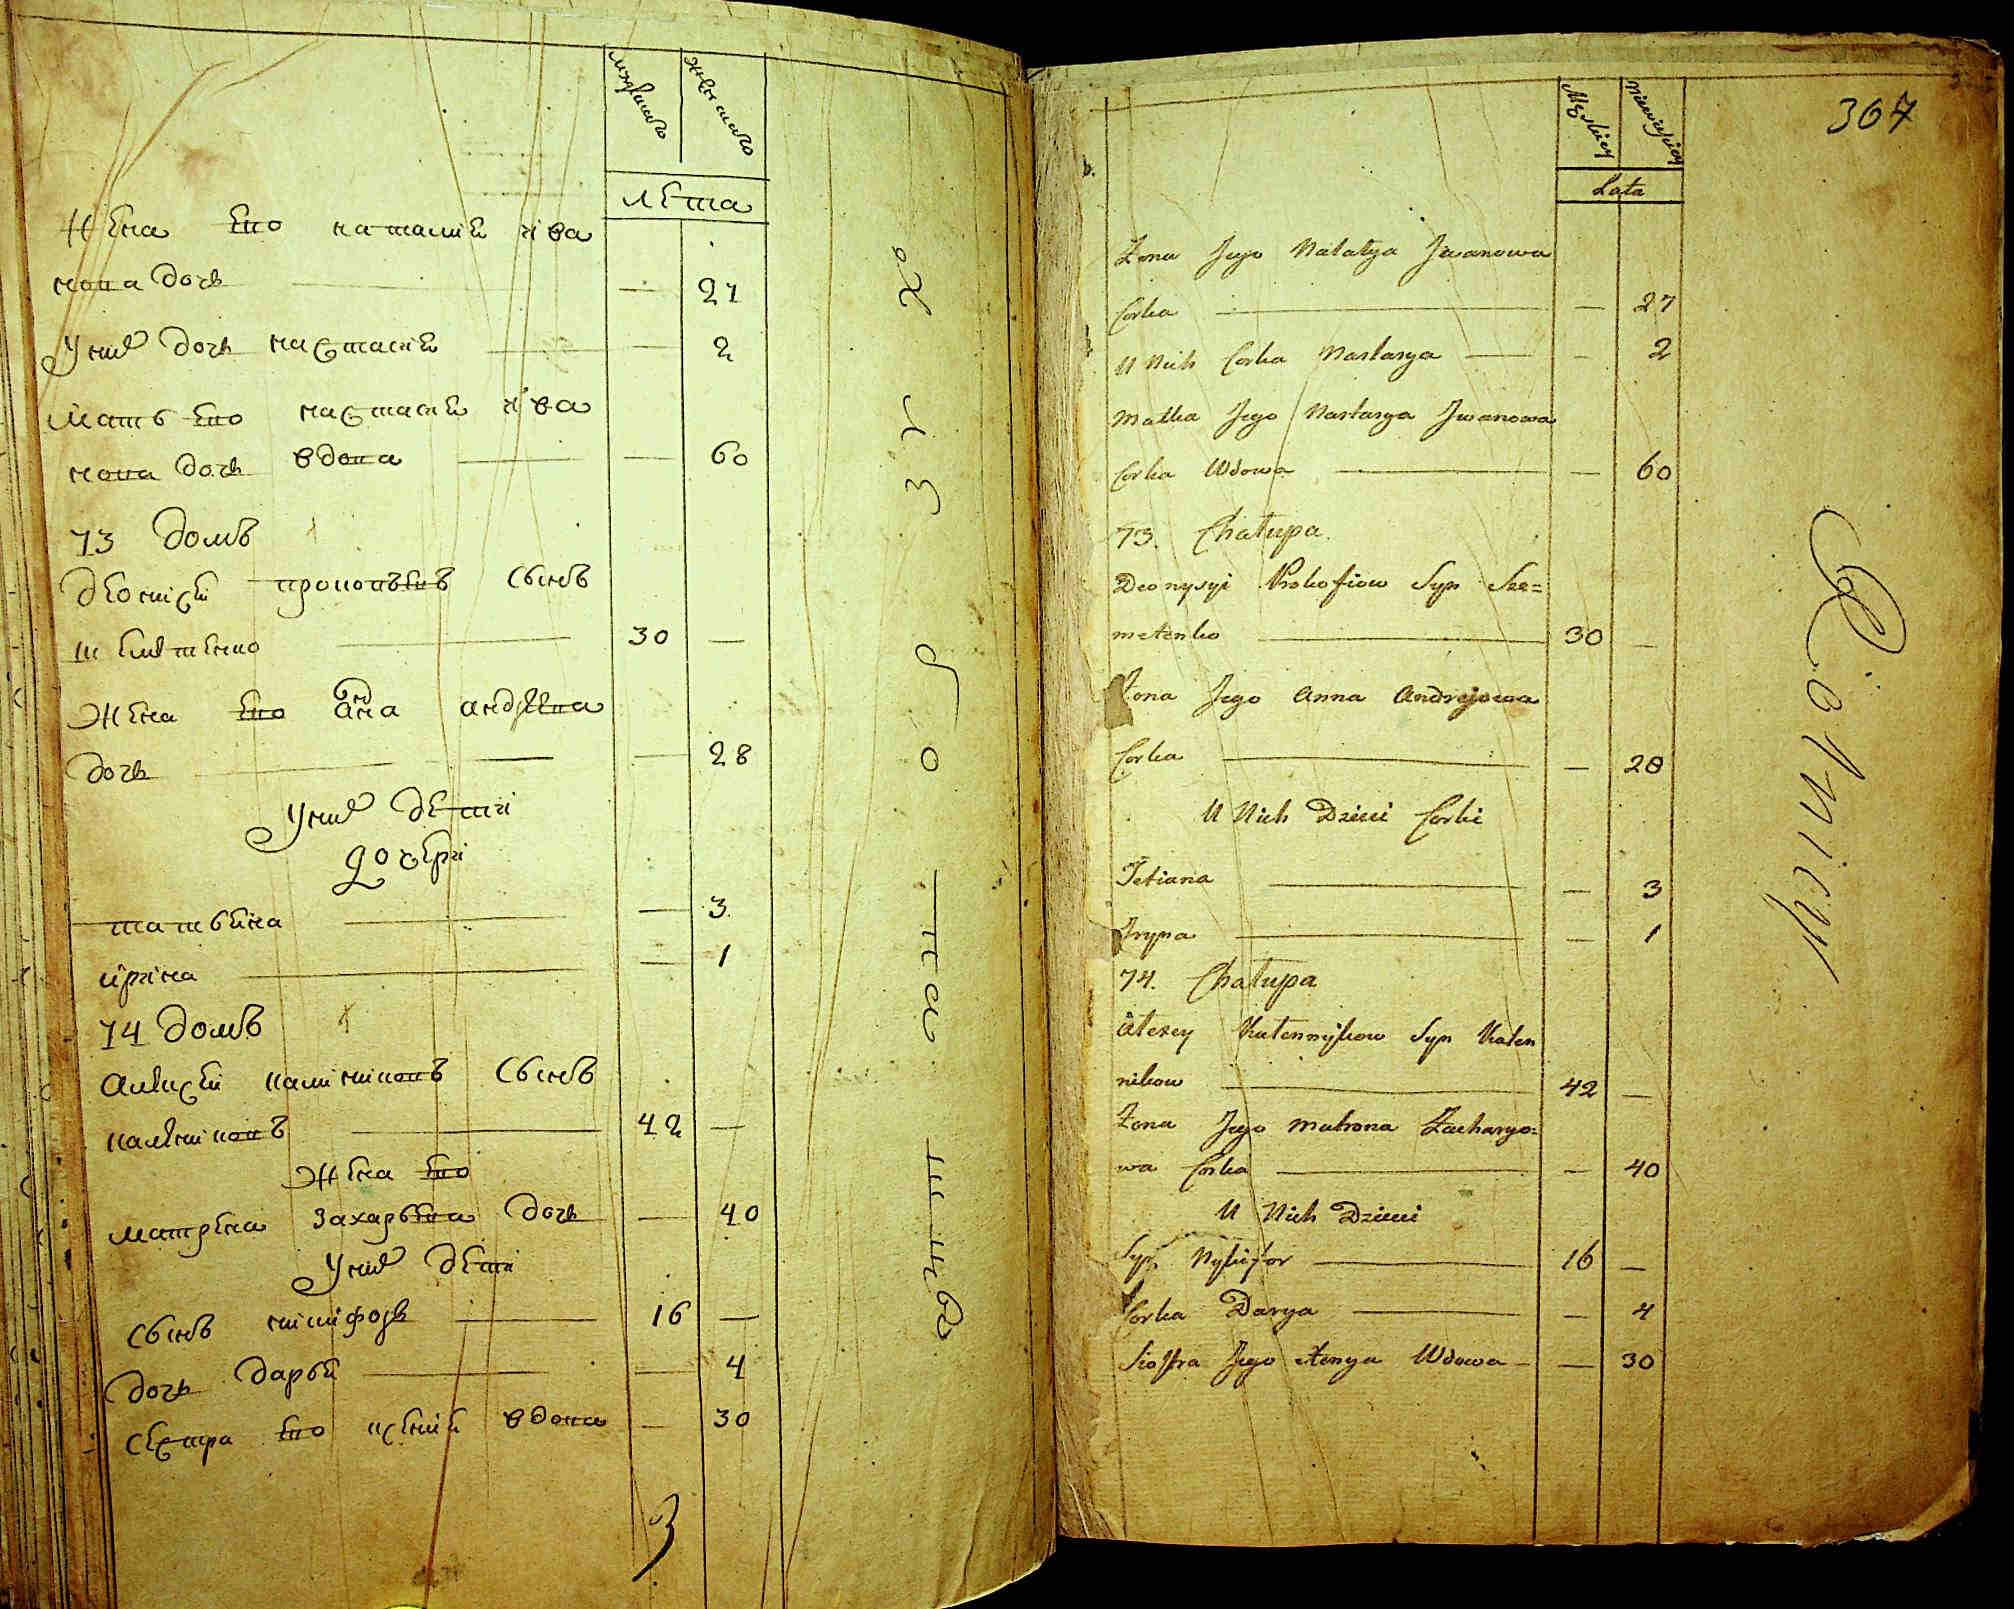 мужескаго
женскаго
лета
Жена его наталия ива
нова дочь — 27
У них дочь настасия — 2
Мать его настасия ива
нова дочь вдова — 60
73 домъ
деонисей прокопьевъ сынъ
шеметенко 30 —
Жена его анна андреева
дочь — 28
У них дети
дочери
татьяна — 3
ирина — 1
74 домъ
алексей калениковъ сынъ
калениковъ 42 —
Жена его
матрена захарьева дочь — 40
У них дети
сынъ никифоръ 16 —
дочь дарья — 4
сестра его ксения вдова — 30
3
367
Męskiey
Niewieskiey
Lata
Żona Jego Natalya Jwanowa
Corka — 27
U Nich Corka Nastasya — 2
Matka Jego Nastasya Jwanowa
Corka Wdowa — 60
73. Chałupa
Deonysyi Prokofiow Syn Sze=
metenko 30 —
Żona Jego Anna Andrejowa
Corka — 28
U Nich Dzieci Corki
Tetiana — 3
Jryna — 1
74. Chałupa
Alexey Kalennikow Syn Kalen
nikow 42 —
Żona Jego Matrona Zacharyo=
wa Corka — 40
U Nich Dzieci
Syn Nykifor 16 —
Corka Darya — 4
Siostra Jego Xenya Wdowa — 30